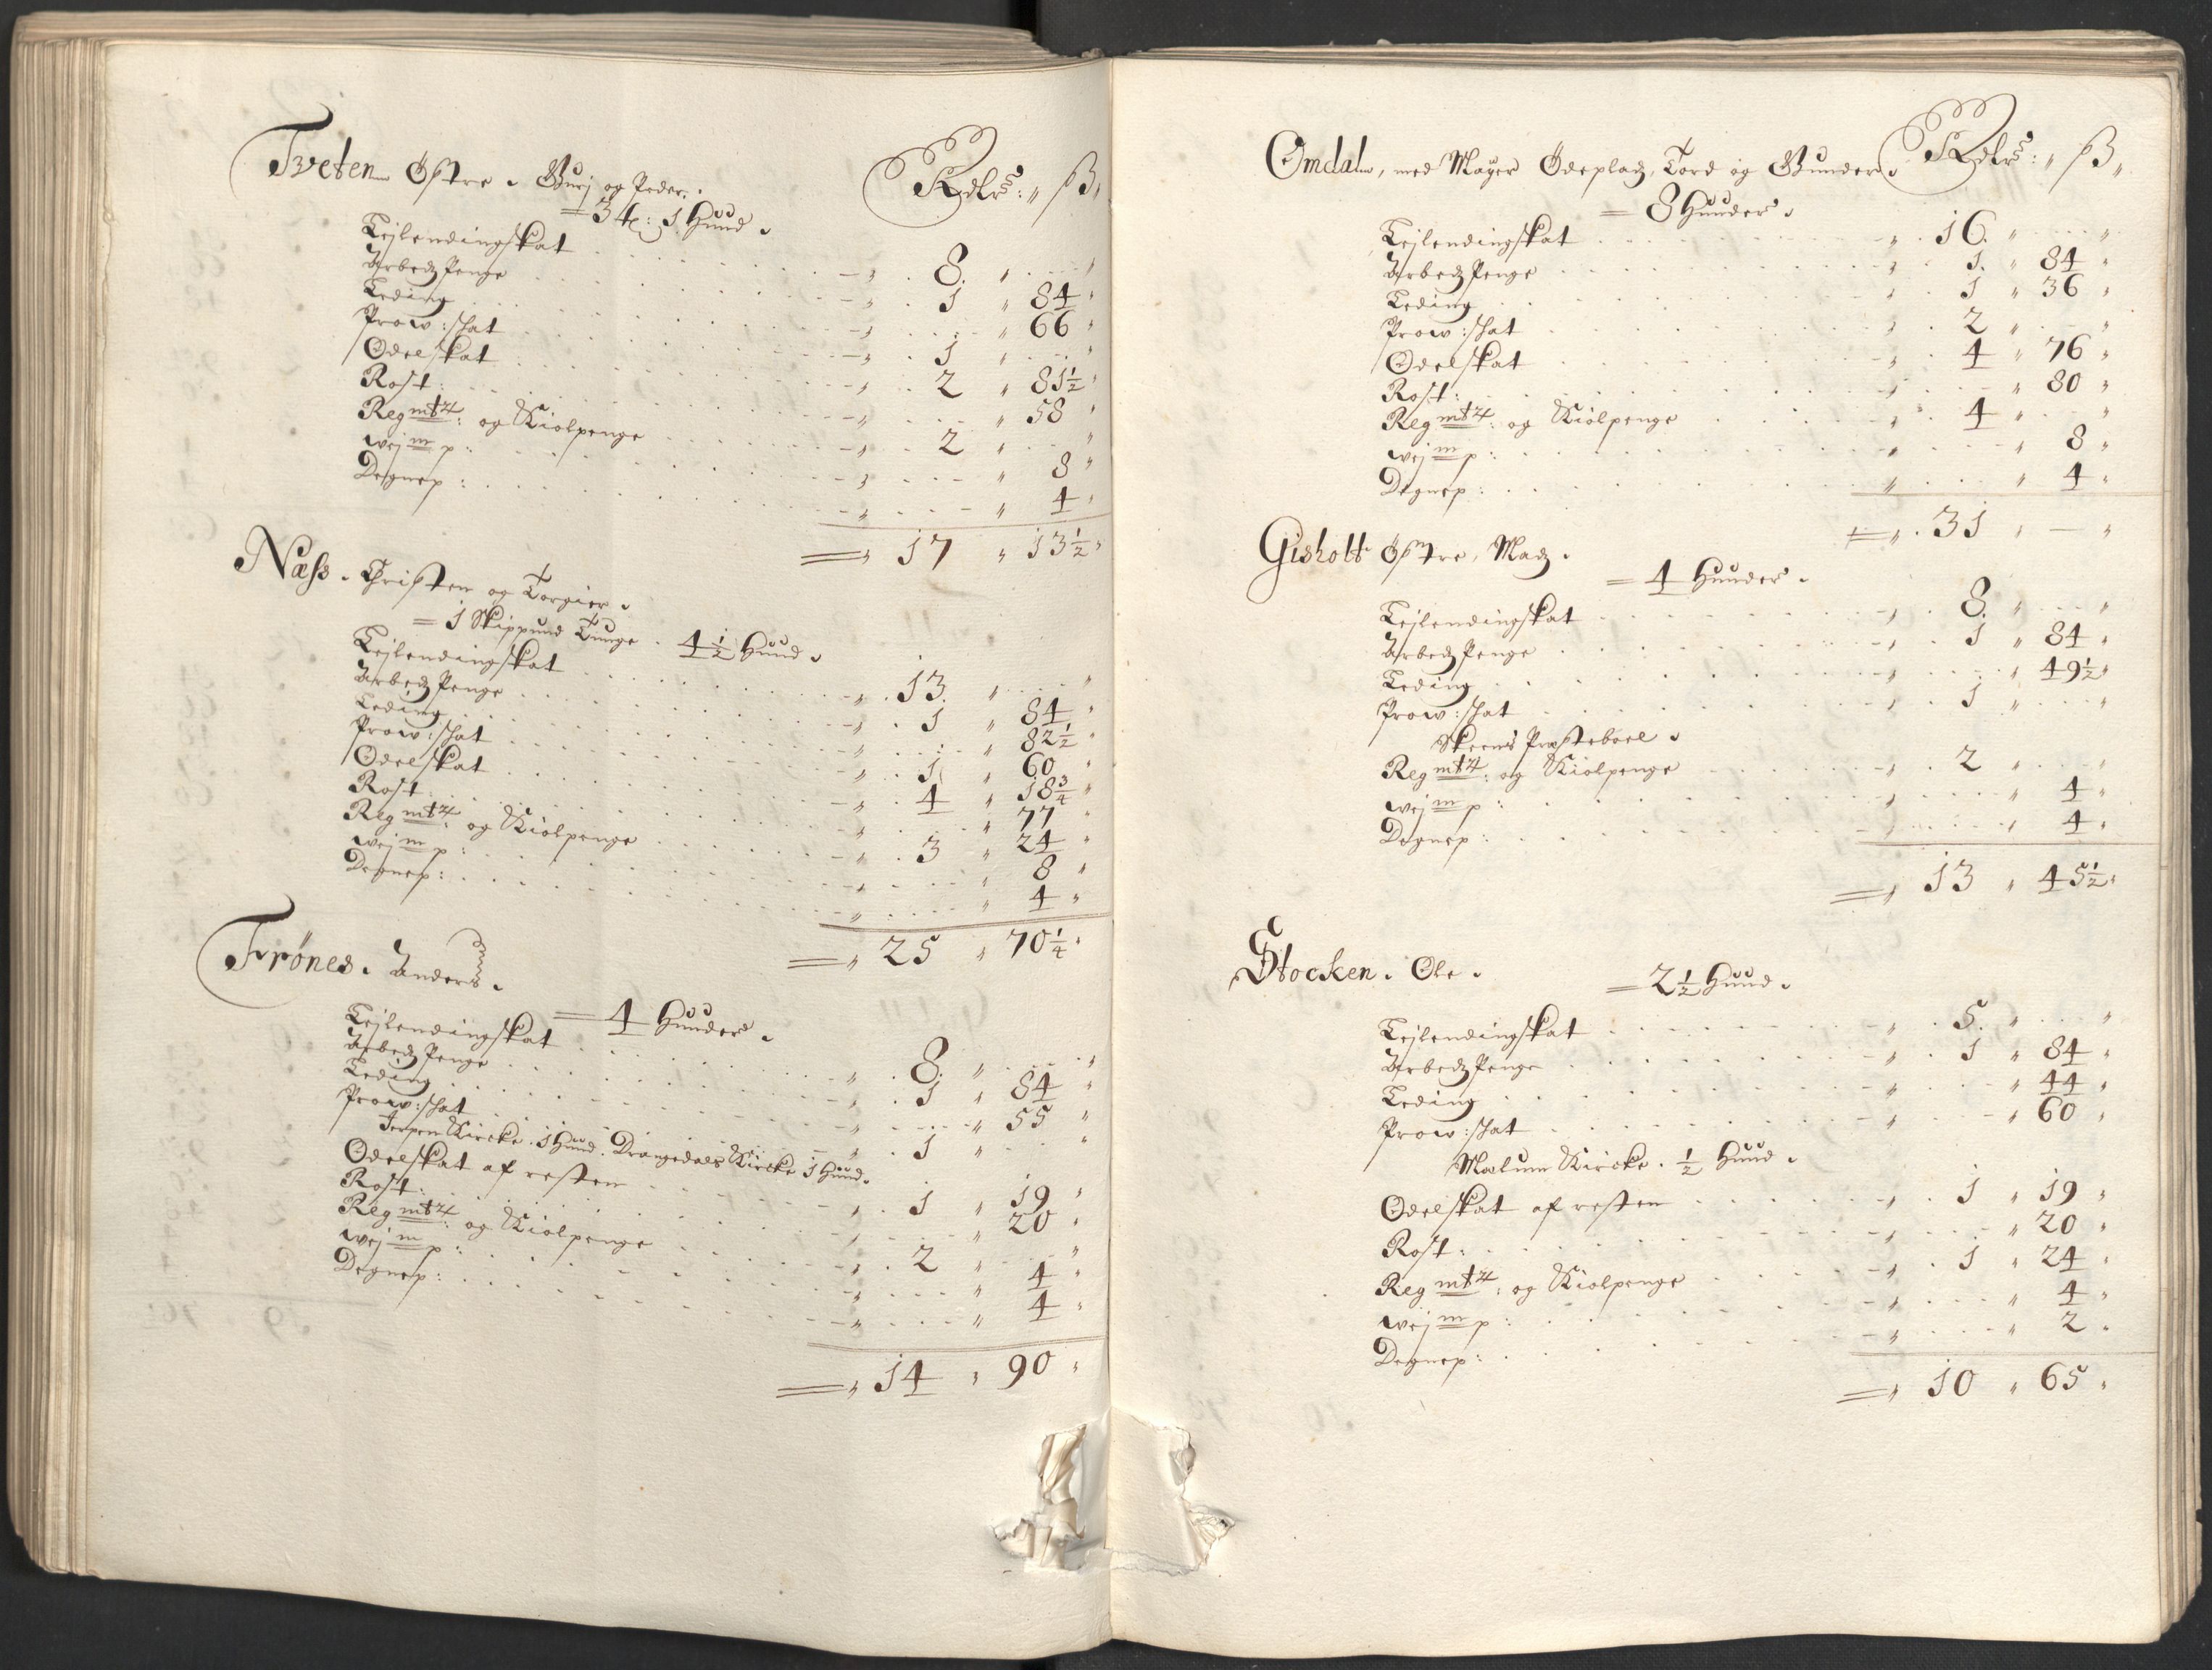 Tveten Östre. Gurj og Peder. Rdlrs: ß
= 3 tl: 1 Huud.
Lejlendingskat 8.
Arbedz Penge 1 84
Leding 66
Prow: skat 1
Odelskat 2 81½
Rost: 58
Reg mtz: og Kiolpenge 2
wej m p: 8
Degnep: 4
= 17 13½
Næss. Christen og Torgier.
= 1 Skippund Tunge. 4½ Huud.
Lejlendingskat 13.
Arbedz Penge 1 84
Leding 82½
Prow: skat 1 60
Odelskat 4 18¾
Rost: 77
Reg mtz: og Kiolpenge 3 24
wej m p: 8
Degnep: 4
= 25 70¼
Frönes. Anders.
= 4 Huuder.
Lejlendingskat 8.
Arbedz Penge 1 84
Leding 55
Prow: skat 1
Kircke. 1 Huud. Drangedals Kircke 1 Huud.
Odelskat af resten 1 19
Rost: 20
Reg mtz: og Kiolpenge 2
wej m p: 4
Degnep: 4
= 14 90
Omdaln, med Mayer Ödepladz, Tord og Gunder. Rdlrs: ß
= 8 Huuder.
Lejlendingskat 16.
Arbedz Penge 1. 84
Leding 1 36
Prow: skat 2
Odelskat 4 76
Rost: 80
Reg mtz: og Kiolpenge 4
wej m p: 8
Degnep: 4
= 31 —
Gisholt Östre, Madz.
= 4 Huuder.
Lejlendingskat 8.
Arbedz Penge 1 84
Leding 49½
Prow: skat 1
Skeens Præsteboel.
Reg mtz: og Kiolpenge 2
wej m p: 4
Degnep: 4
= 13 45½
Stocken. Ole.
= 2½ Huud.
Lejlendingskat 5.
Arbedz Penge 1 84
Leding 44
Prow: skat 60
Mælum Kircke. ½ Huud.
Odelskat af resten 1 19
Rost: 20
Reg mtz: og Kiolpenge 1 24
wej m p: 4
Degnep: 2
= 10 65